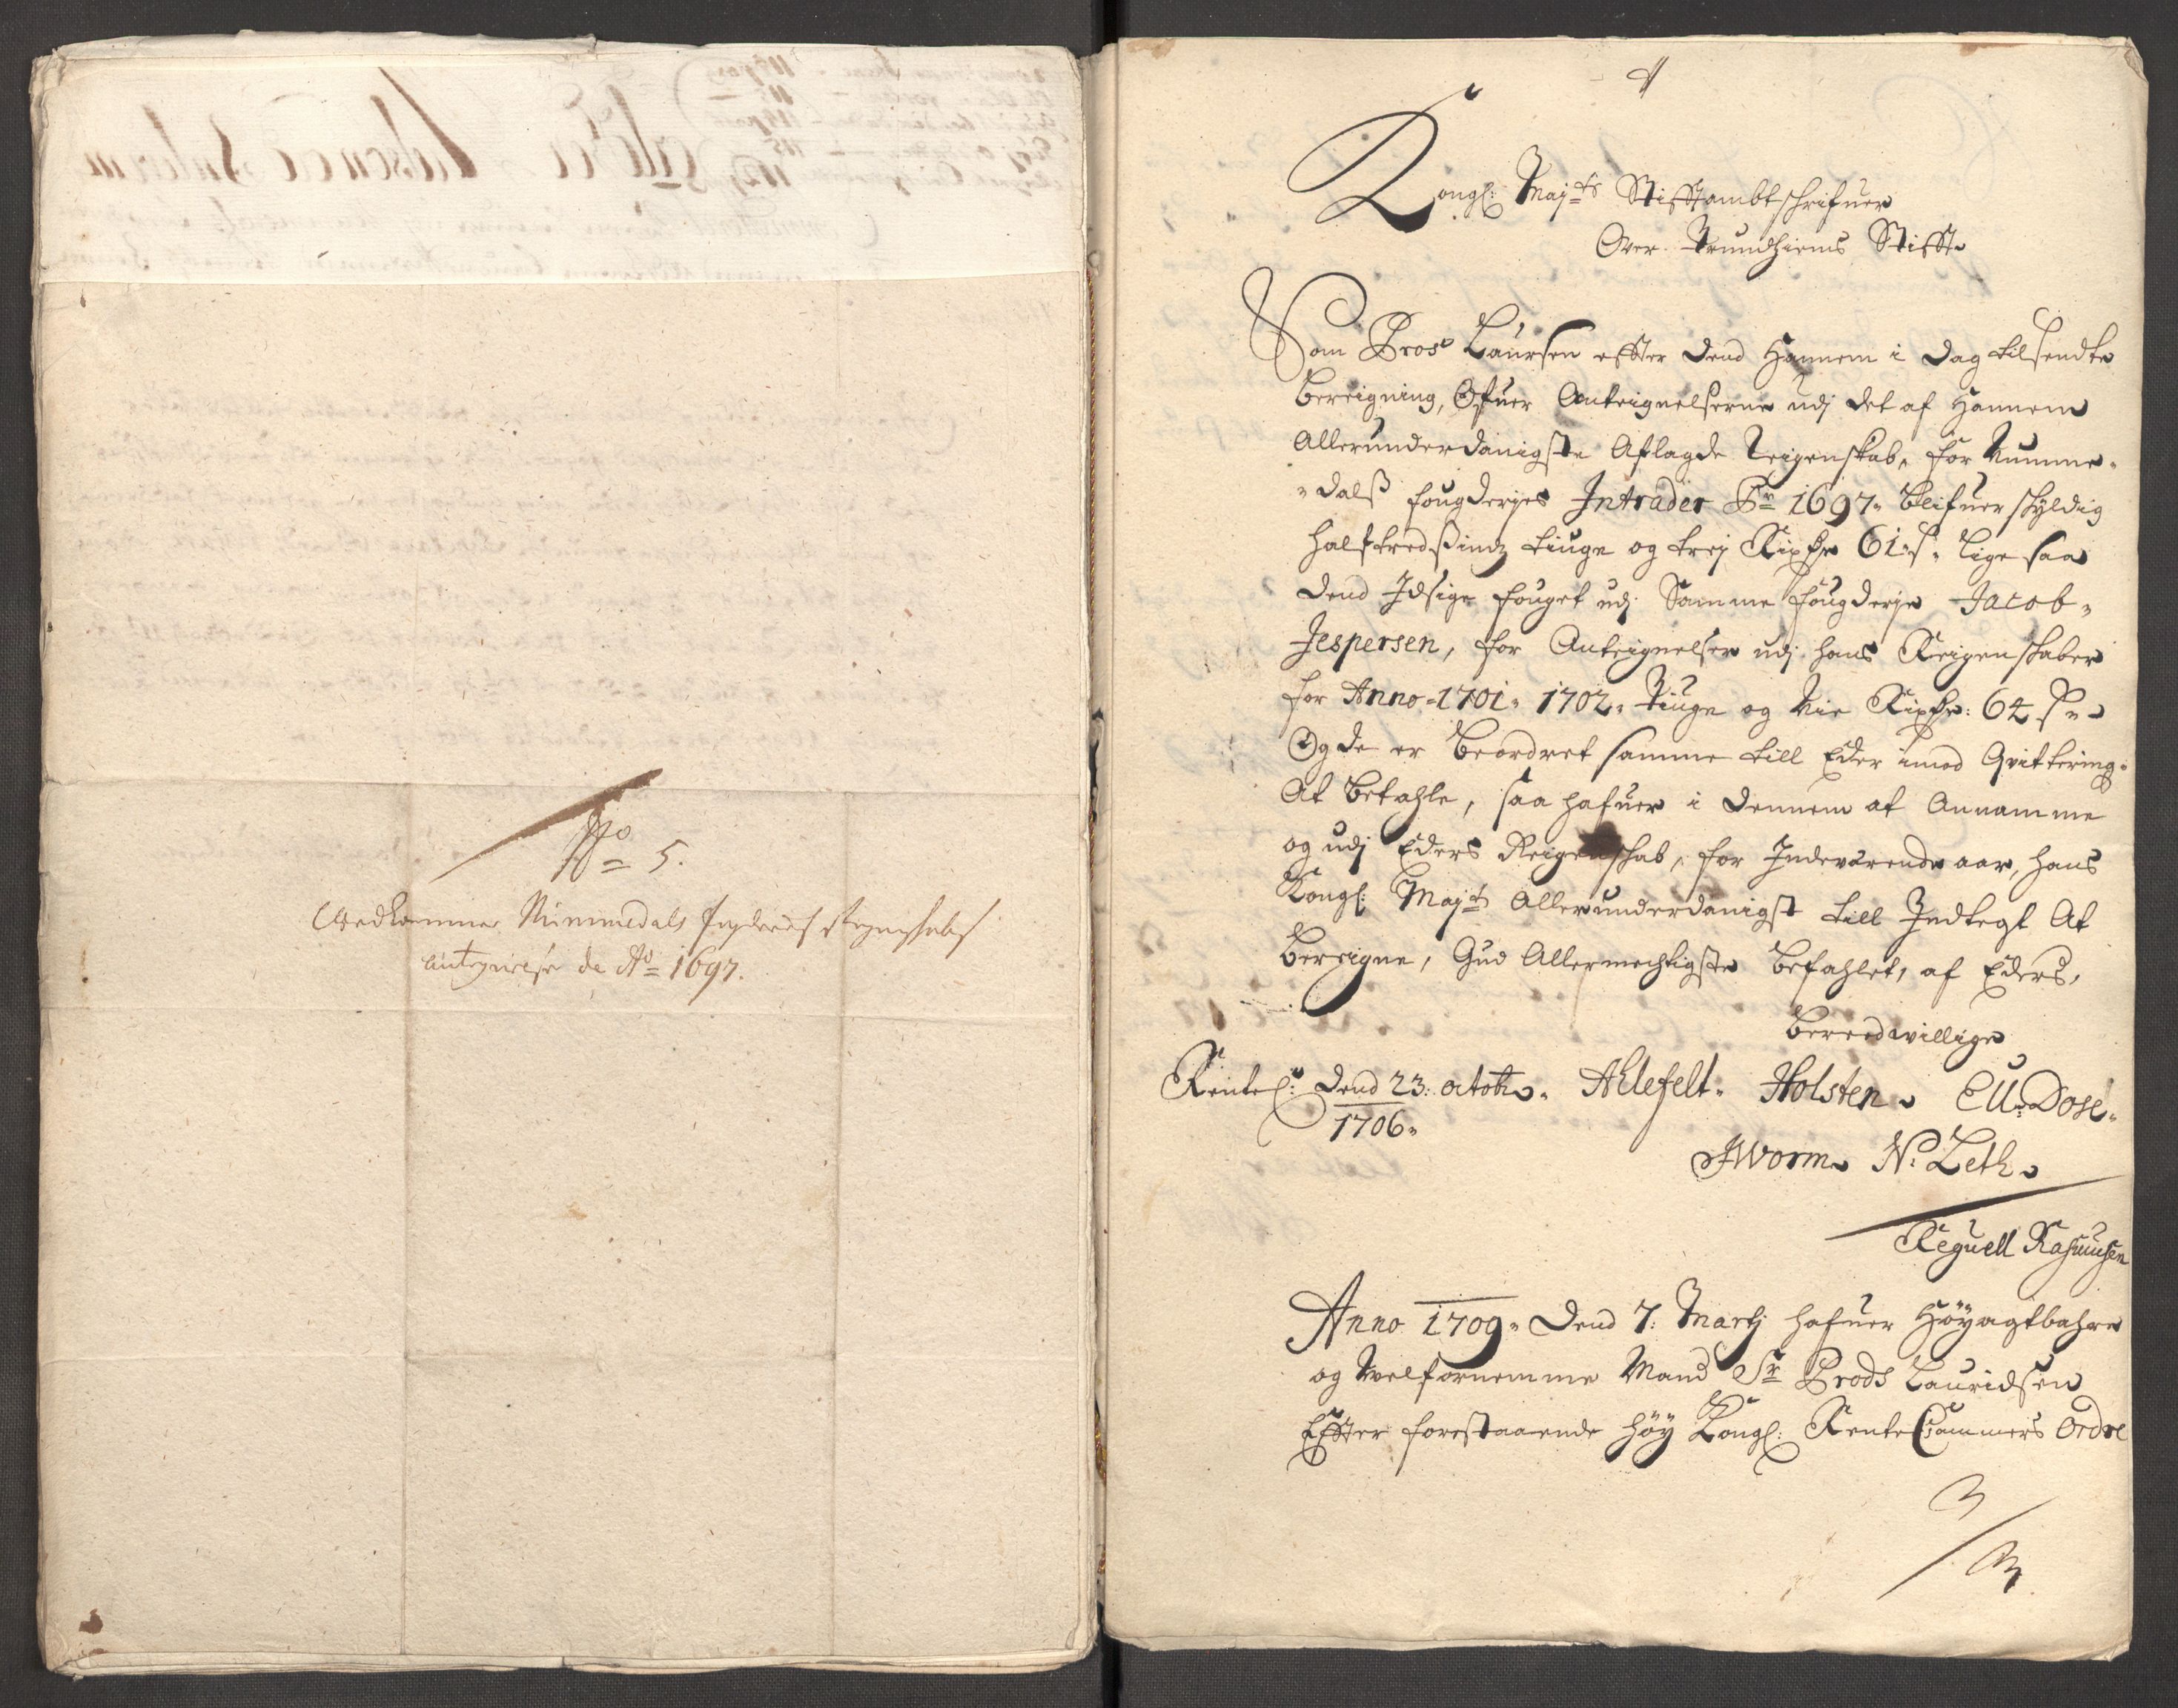 No 5.
Vedkommer Nummedals fogderies Regenskabs
antegnelse de Ao 1697.
Kongl: Maj:ts Stifftambtschrifuer
Over Trundhiems Stifft
Som Bros Laursen effter dend hannem i dag tilsendte
Bereigning, Ofuer Anteignelserne udj det af hannem
Allerunderdanigste Aflagde Reigenskab, for Numme-
dalß fougderjes Intrader Ao 1697. blifuer skyldig
halftredßindz tiuge og trej Rixdr 61 s. lige saa
dend Idsige fouget udj Samme fougderje Jacob
Jespersen, for Anteignelser udj hans Reigenskaber
for Anno 1701. 1702. tiuge og Nie Rixdr: 64 s.
Og de er beordret samme till Eder imod Qvittering
At betahle, saa hafuer i dennem at Annamme
og udj Eders Reigenschab, for Indeværende aar, hans
Kongl: Maj:ts Allerunderdanigst till Indtegt At
bereigne, Gud Allermechtigste befahlet, af Eders,
Beredvillige
Rentec: dend 23: octobr. Ahlefelt. Holsten. CU: Dose.
1706.
JWorm. N: Leth.
Reguell Rasmusen
Anno 1709. dend 7: Martj hafuer Høyagtbahre
og Welfornemme Mand Sr Brods Lauridsen
Effter forestaaende høy Kongl: RenteCammers Ordre